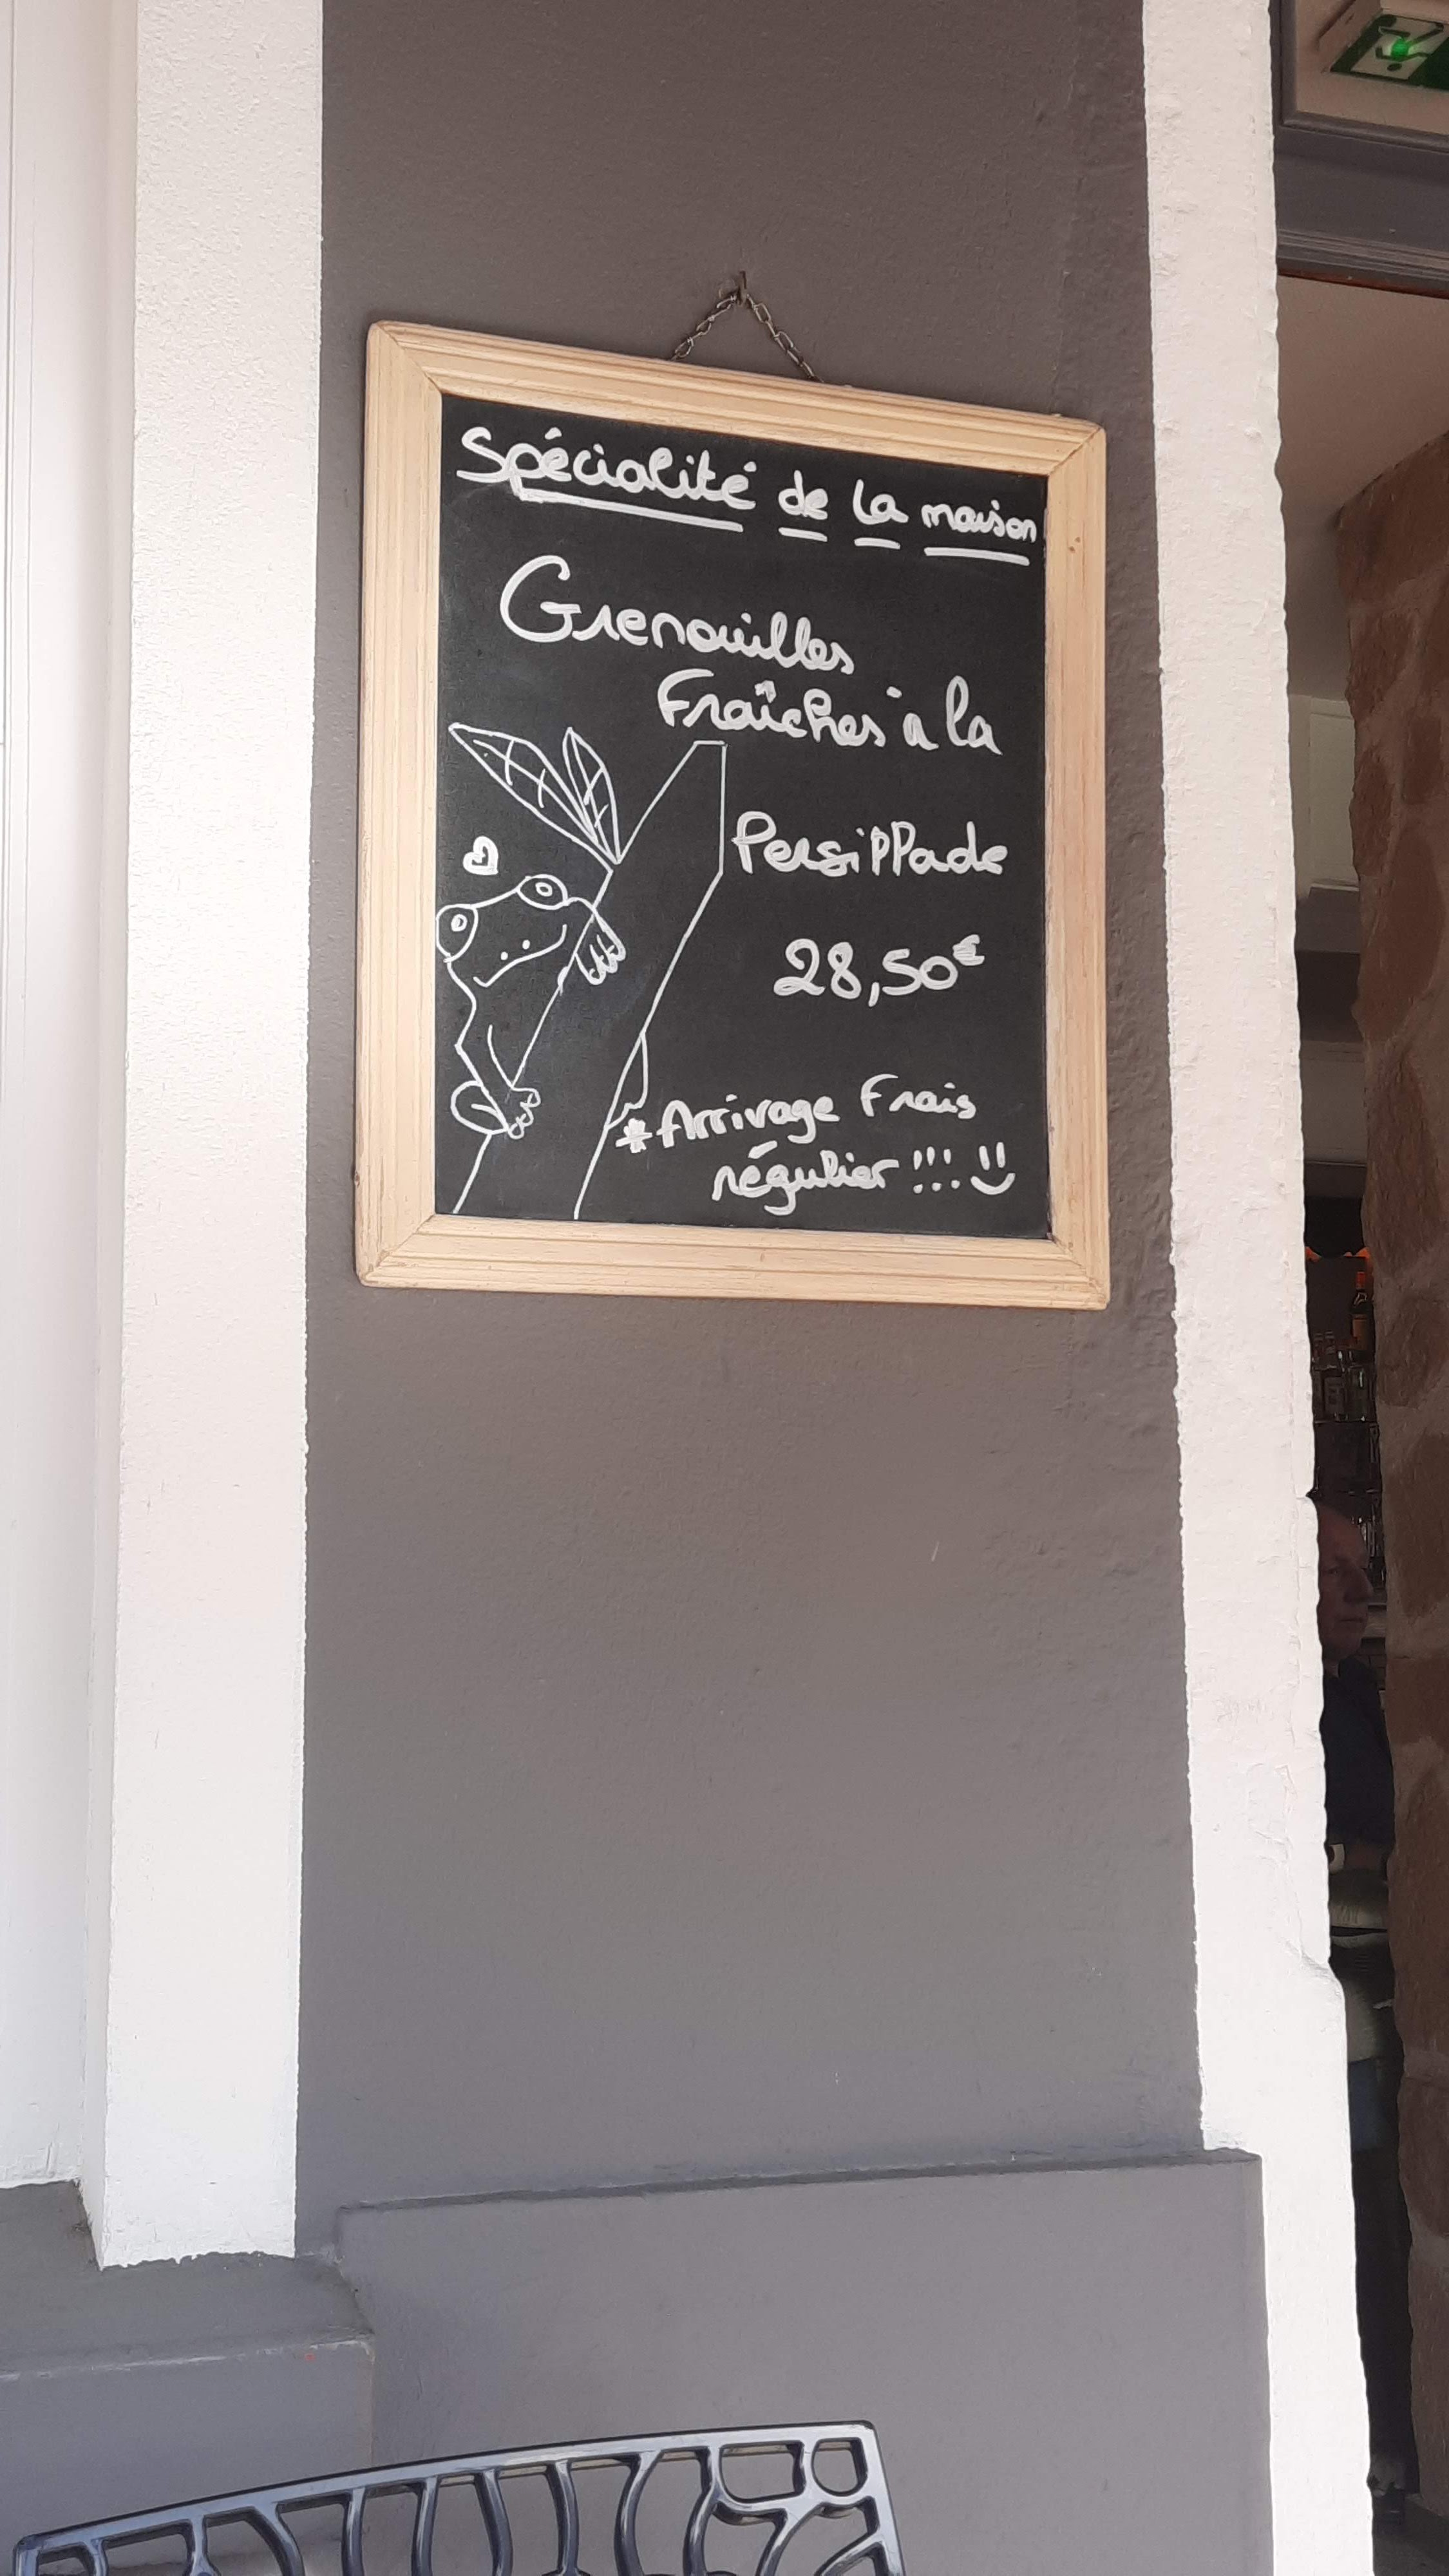 Spécialité de la maison
Grenouilles
Fraîches à la
Persippade
28,50€
*Arrivage Frais
régulier !!!